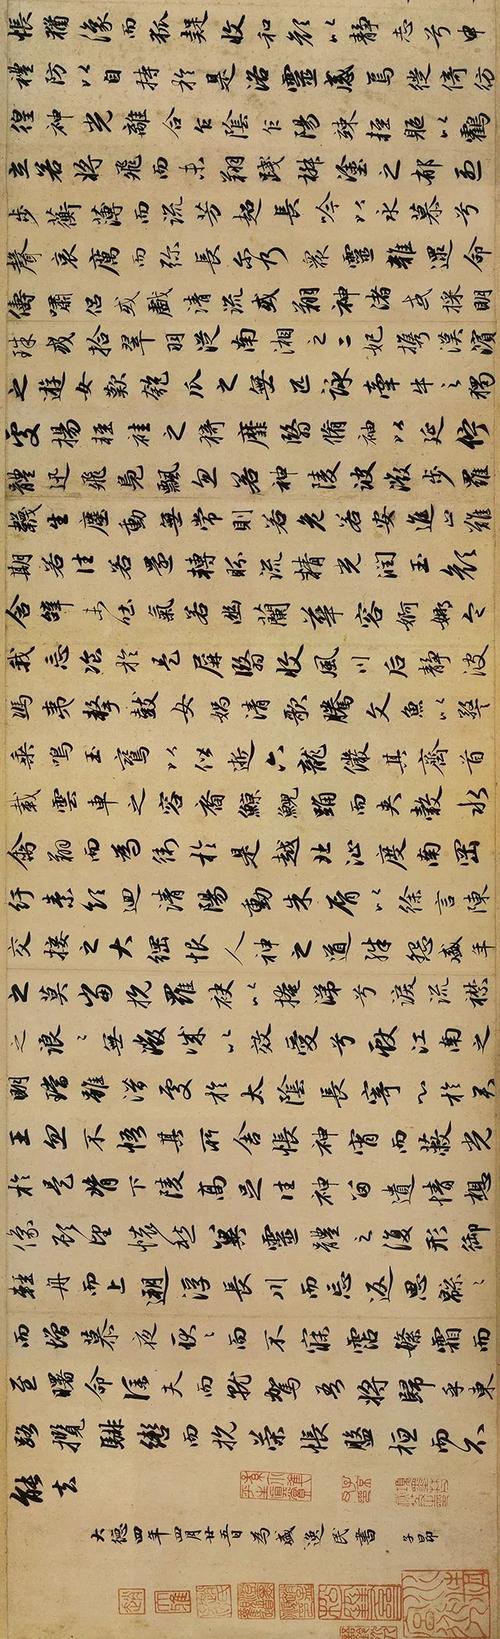 悵猶豫而狐疑收和顏以靜志兮申
禮防以自持於是洛靈感焉徙倚彷
徨神光離合乍陰乍陽竦輕軀以鶴
立若將飛而未翔踐椒塗之郁烈
步蘅薄而流芳超長吟以永慕兮
聲哀厲而彌長爾乃衆靈雜遝命
儔嘯侶或戲清流或翔神渚或採明
珠或拾翠羽從南湘之二妃攜漢濱
之遊女歎匏瓜之無匹詠牽牛之獨
處揚輕袿之猗靡翳脩袖以延佇
體迅飛鳧飄忽若神陵波微步羅
襪生塵動無常則若危若安進止難
期若往若還轉眄流精光潤玉顏
含辭未吐氣若幽蘭華容婀娜令
我忘飡於是屏翳收風川后靜波
馮夷擊鼓女媧清歌騰文魚以警
乘鳴玉鸞以偕逝六龍儼其齊首
載雲車之容裔鯨鯢踴而夾轂水
禽翔而為衛於是越北沚度南岡
紆素領迴清陽動朱脣以徐言陳
交接之大綱恨人神之道殊怨盛年
之莫當抗羅袂以掩涕兮淚流襟
之浪浪無微情以效愛兮獻江南之
明璫雖潛處於太陰長寄心於君
王忽不悟其所舍悵神宵而蔽光
於是背下陵高足往神留遺情想
像顧望懷愁冀靈體之復形御
輕舟而上遡浮長川而忘返思緜緜
而增慕夜耿耿而不寐霑繁霜而
至曙命僕夫而就駕吾將歸乎東
路攬騑轡而抗策悵盤桓而不
能去
大德四年四月廿五日為盛逸民書 子昂